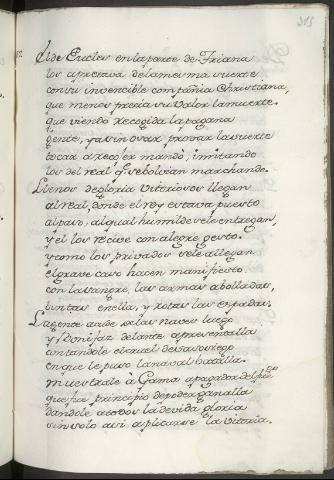 315
El de Eucles en la parte de Triana
los apretava de la mesma suerte
con su invencible compañia Christiana,
que menos precia su valor la muerte.
que viendo recogida la pagana
gente, y a sin osar provar la suerte
tocar a recoger mandò, imitando
los del real q̃ se bolvian marchando.
Llenos de gloria vitoriosos llegan
al real, donde el rey estava puesto
al paso, al qual humilde se le entregan,
y el los recive con alegre gesto.
y como los privados se le allegan
el grave caso hacen manifiesto
con la sangre, las armas abolladas,
tintas en ella, y rotas las espadas.
La gente a a de las naves luego
y Bonifaz delante a presentalla
contandole el cruel desasosiego
en que le puso la naval batalla.
muestrale à Gama apagador del fuego
que fue principio de poder ganalla
dandole a estos la devida gloria
sin solo a si aplicarse la vitoria.